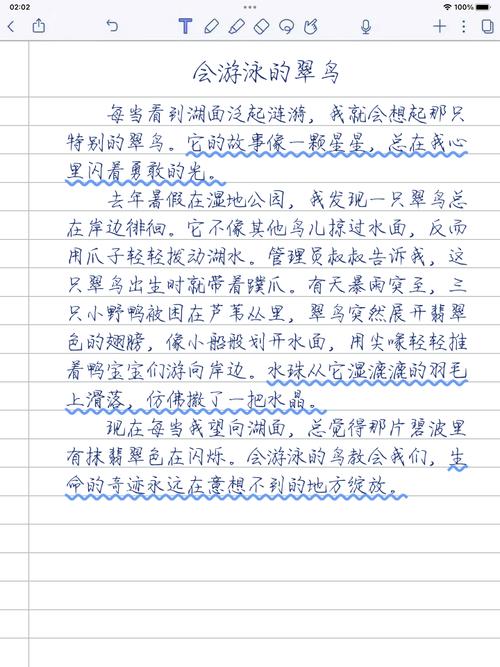 02:02
100%
会游泳的翠鸟
每当看到湖面泛起涟漪，我就会想起那只
特别的翠鸟。它的故事像一颗星星，总在我心
里闪着勇敢的光。
去年暑假在湿地公园，我发现一只翠鸟总
在岸边徘徊。它不像其他鸟儿掠过水面，反而
用爪子轻轻拨动湖水。管理员叔叔告诉我，这
只翠鸟出生时就带着蹼爪。有天暴雨突至，三
只小野鸭被困在芦苇丛里，翠鸟突然展开翡翠
色的翅膀，像小船般划开水面，用尖喙轻轻推
着鸭宝宝们游向岸边。水珠从它湿漉漉的羽毛
上滑落，仿佛撒了一把水晶。
现在每当我望向湖面，总觉得那片碧波里
有抹翡翠色在闪烁。会游泳的鸟教会我们，生
命的奇迹永远在意想不到的地方绽放。